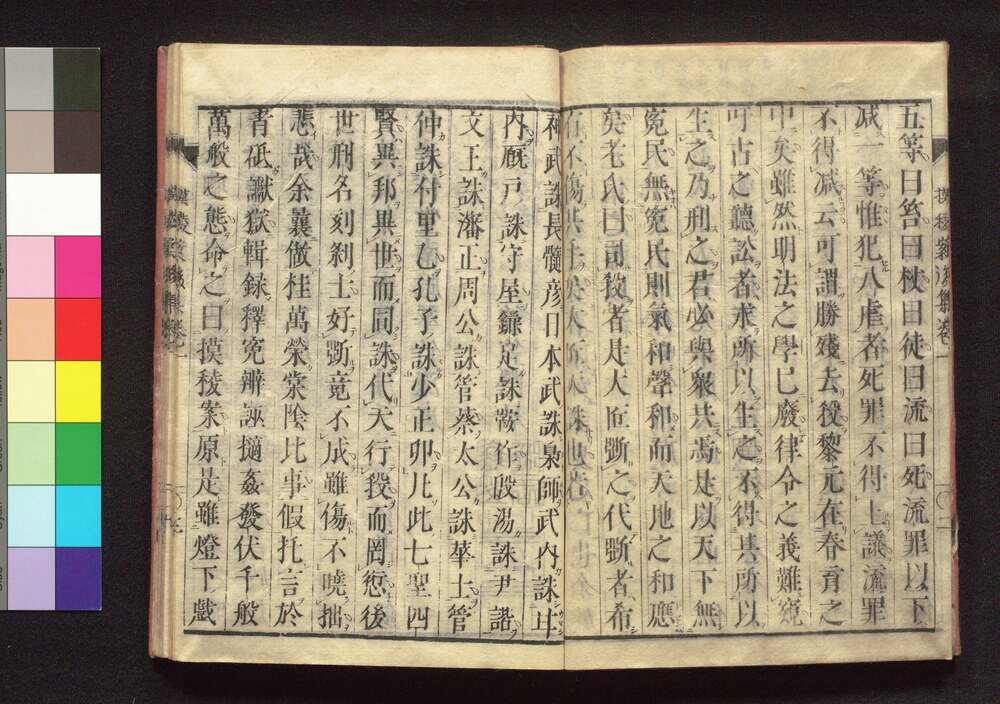 五等曰笞曰杖曰徒曰流曰死流罪以下
减一等惟犯八虐者死罪不得上議流罪
不得减云可謂勝殘去殺黎元在春育之
中矣雖然明法之學已廢律令之義難窺
于古之聽訟者求所以生之不得其所以
生之乃刑之君必與衆共焉是以天下無
寃民無寃民則氣和聲和而天地之和應
矣老氏曰司殺者是大匠斲之代斲者希
有不傷其手矣大匠天誅也若
神武誅長髓彦日本武誅梟師武内誅
内厩戸誅守屋鎌足誅鞍作殷湯誅尹諧
文王誅潘正周公誅管蔡太公誅華士管
仲誅付里乙孔子誅少正卯凡此七聖四
賢異邦異世而同誅代天行殺而罔愆後
世刑名刻刹士好斲竟不成雖傷不曉拙
悲哉余曩倣桂萬榮棠陰比事假托言於
青砥讞獄輯録釋寃辨誣擿姦發伏千般
萬般之態命之曰摸稜案原是雖燈下戯